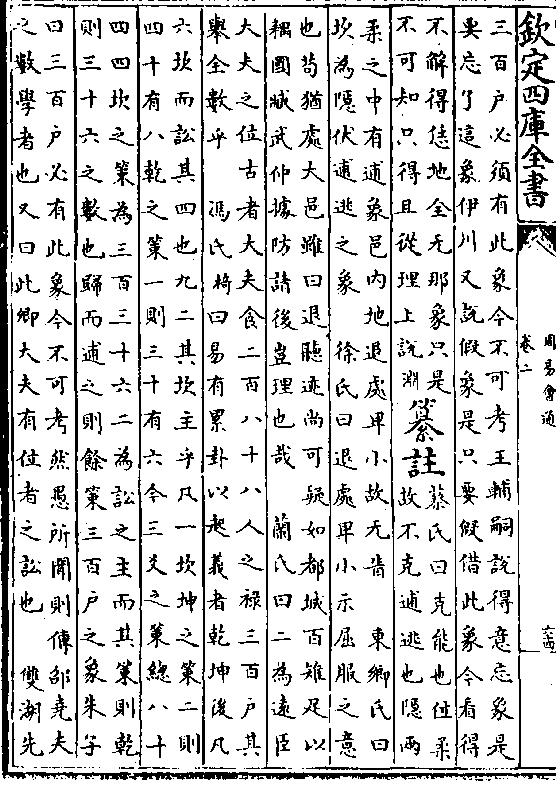 欽定四庫全書
周易會通
卷二
三百户必須有此象今不可考王輔嗣說得意忘象是
要忘了這象伊川又說假象是只要假借此象今看得
不解得恁地全无那象只是
不可知只得且從理上說淵
纂註
蔡氏曰克能也伍柔
故不克逋逃也隠兩
柔之中有逋象邑内地退處卑小故无眚 東鄉氏曰
坎為隠伏逋逃之象 徐氏曰退處卑小示屈服之意
也苟猶處大邑雖曰退聽迹尚可疑如都城百雉足以
耦國臧武仲據防請後豈理也哉 蘭氏曰二為遠臣
大夫之位古者大夫食二百八十八人之禄三百户其
舉全數乎 馮氏椅曰易有累卦以起義者乾坤後凡
六坎而訟其四也九二其坎主乎凡一坎坤之策二則
四十有八乾之策一則三十有六今三爻之策總八十
四四坎之策為三百三十六二為訟之主而其策則乾
則三十六之數也歸而逋之則餘策三百户之象朱子
曰三百户必有此象今不可考然愚所聞則傳邵堯夫
之數學者也又曰此卿大夫有位者之訟也 雙湖先